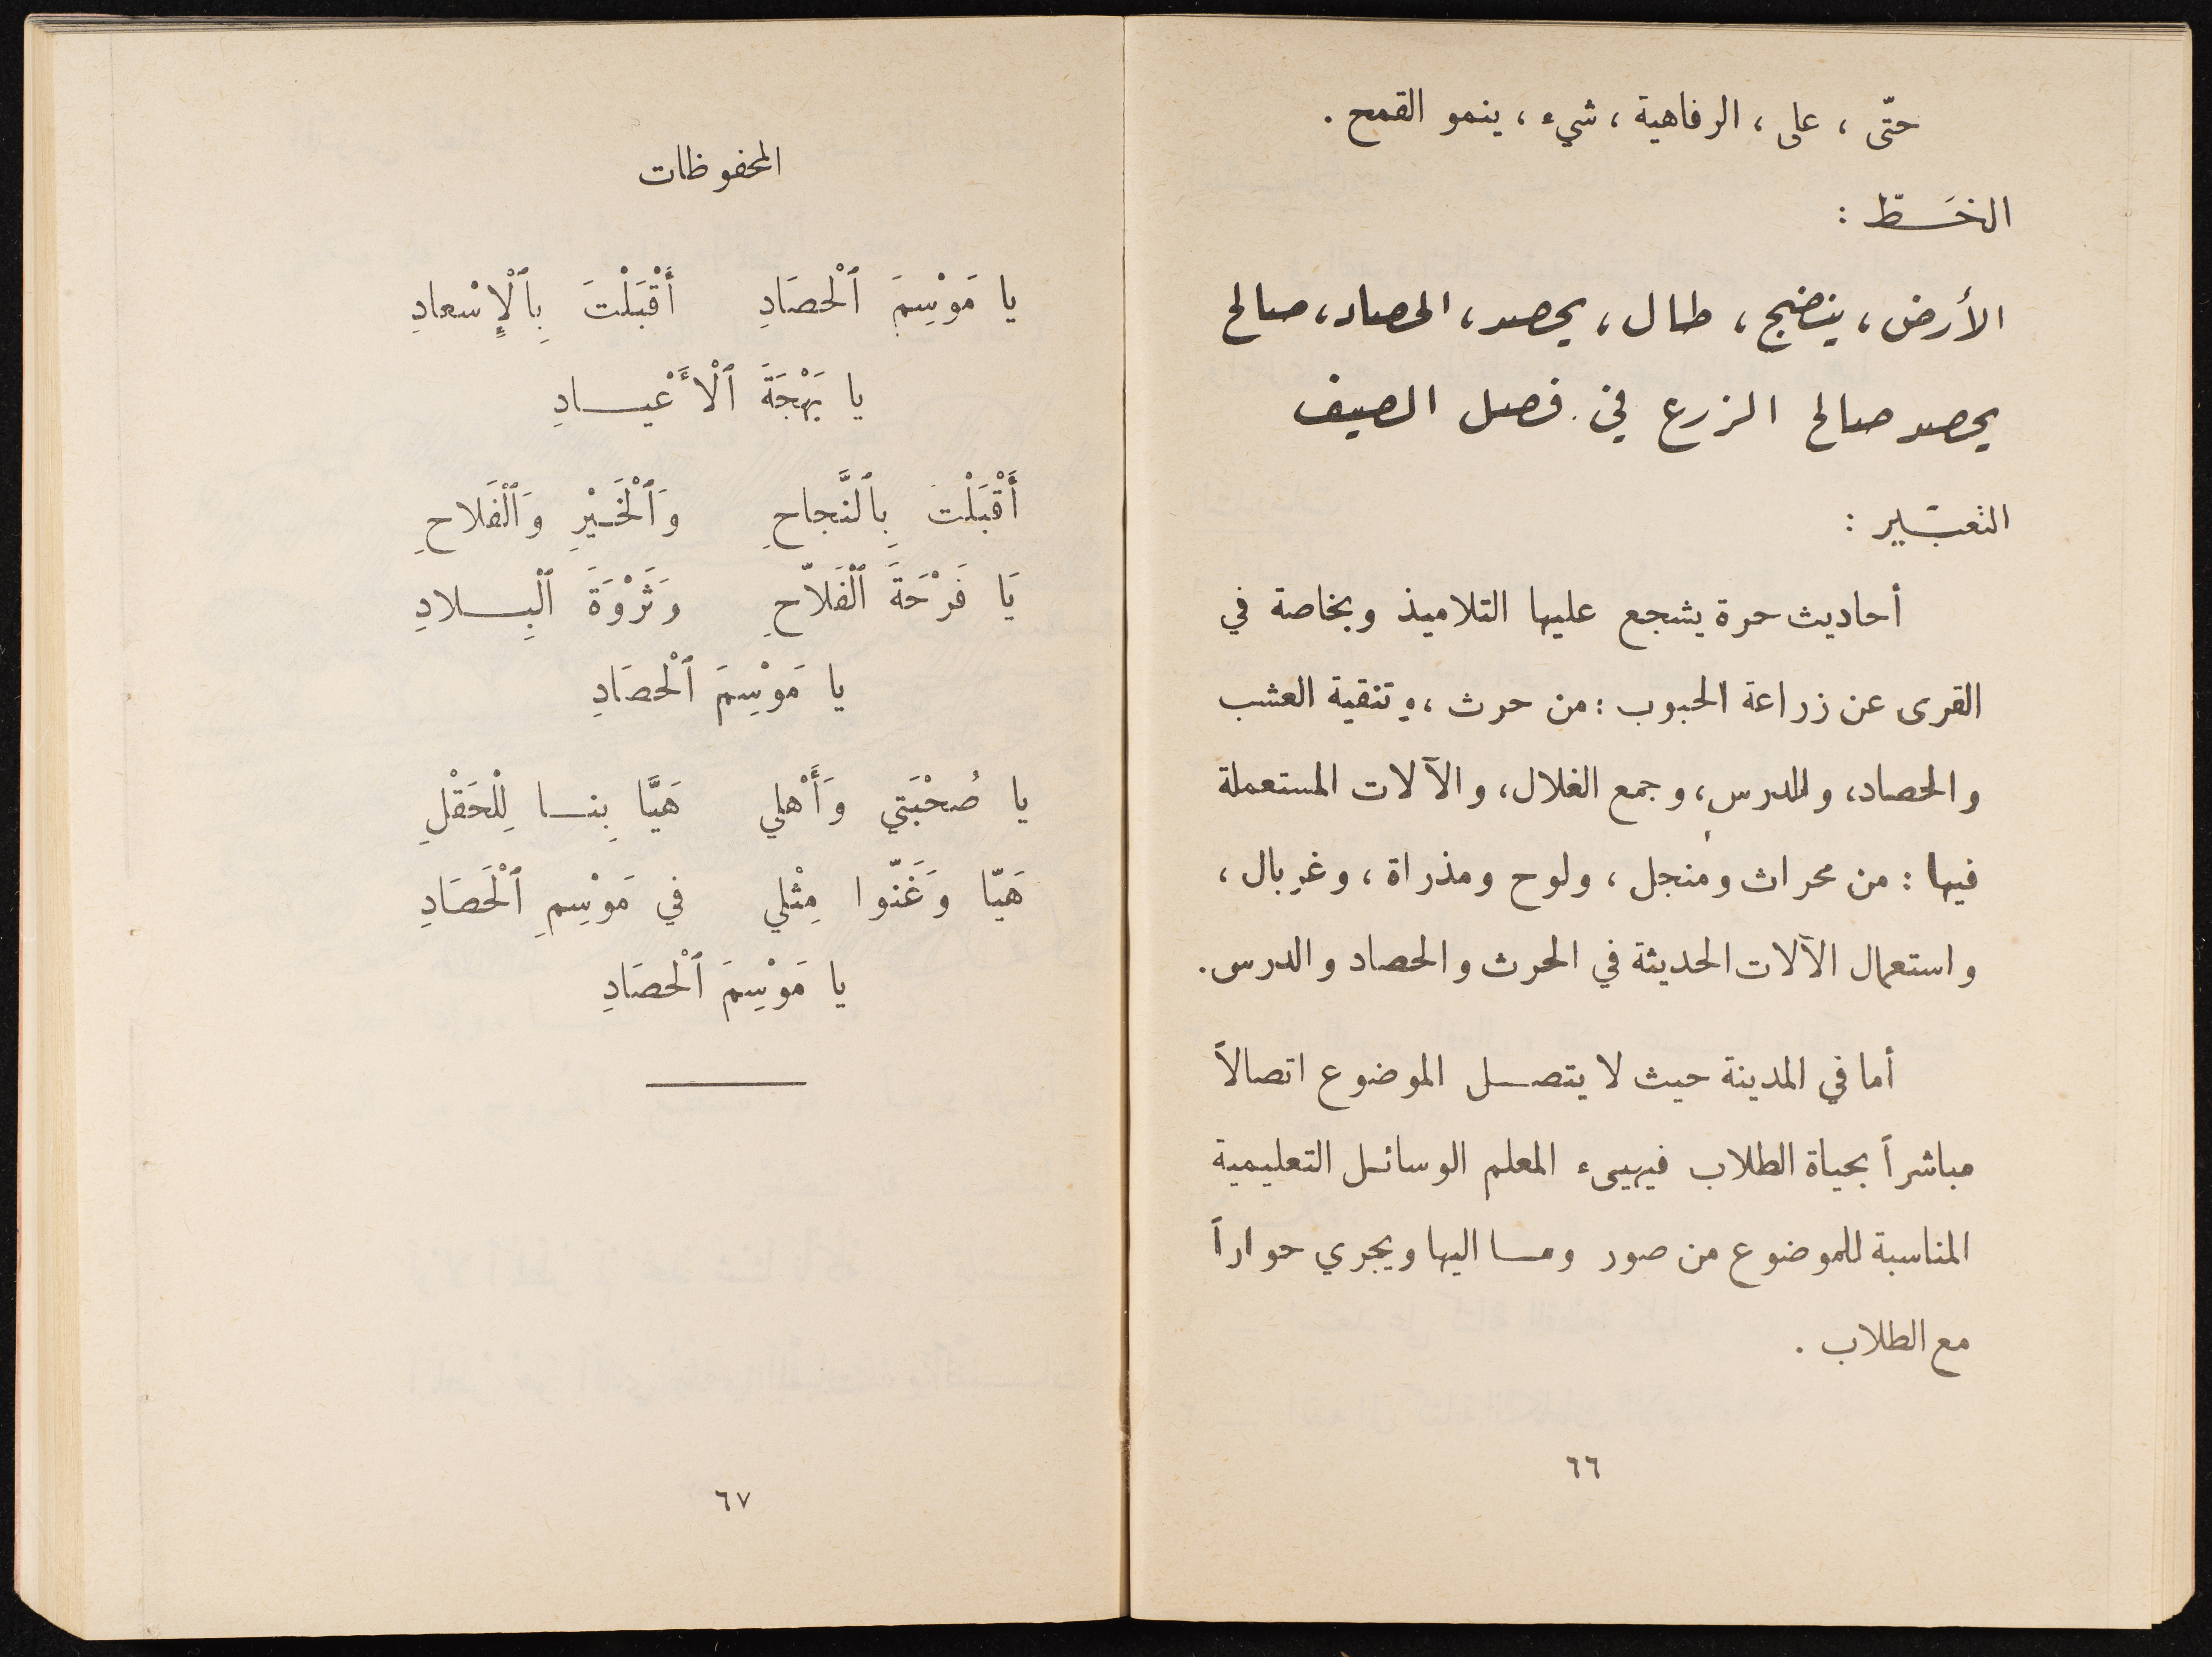 حتّى ، على ، الرفاهية ، شيء ، ينمو القمح .
الخَـــطّ :
الأرض ، ينضج ، طال ، يحصد ، الحصاد ، صالح
يحصد صالح الزرع في فصل الصيف
التعبَـير :
أحاديث حرة يشجع عليها التلاميذ وبخاصة في
القرى عن زراعة الحبوب : من حرث ، وتنقية العشب
والحصاد ، والدرس ، وجمع الغلال ، والآلات المستعملة
فيها : من محراث ومنجل ، ولوح ومذراة ، وغربال ،
واستعمال الآلات الحديثة في الحرث والحصاد والدرس .
أما في المدينة حيث لا يتصـــل الموضوع اتصالاً
مباشراً بحياة الطلاب فيهيىء المعلم الوسائل التعليمية
المناسبة للموضوع من صور ومـــا اليها ويجري حواراً
مع الطلاب .
٦٦
المحفوظات
يا مَوْسِمَ ٱلْحصَادِ أَقْبَلْتَ بِٱلْإِسْعادِ
يا بَهْجَةَ ٱلْأَعْيـــادِ
أَقْبَلْتَ بِٱلنَّجاحِ وَٱلْخَـيْرِ وَٱلْفَلاحِ
يَا فَرْحَةَ ٱلْفَلاّحِ وَثَرْوَةَ ٱلْبِـــلادِ
يا مَوْسِمَ ٱلْحصَادِ
يا صُحْبَتي وَأَهْلي هَيَّا بِنـــا لِلْحَقْلِ
هَيّا وَغَنّوا مِثْلي في مَوْسِمِ ٱلْحَصَادِ
يا مَوْسِمَ ٱلْحصَادِ
٦٧